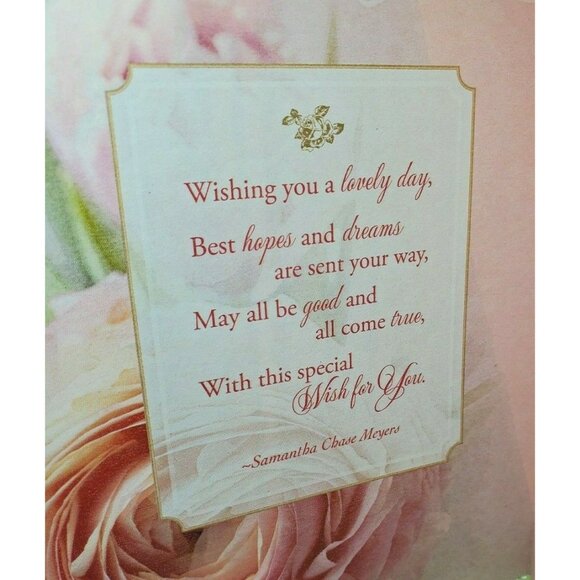 Wishing you a lovely day,
Best hopes and dreams
are sent your way,
May all be good and
all come true,
With this special
Wish for You.
~Samantha Chase Meyers